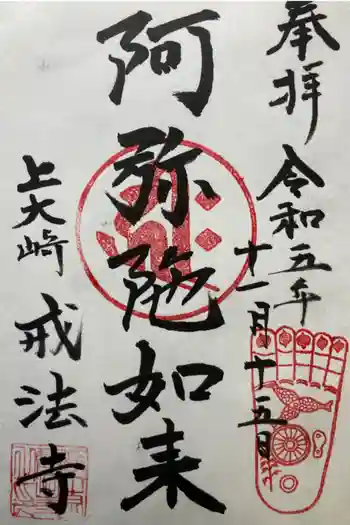 奉拝
令和五年
十一月十五日
阿弥陀如来
上大崎
戒法寺